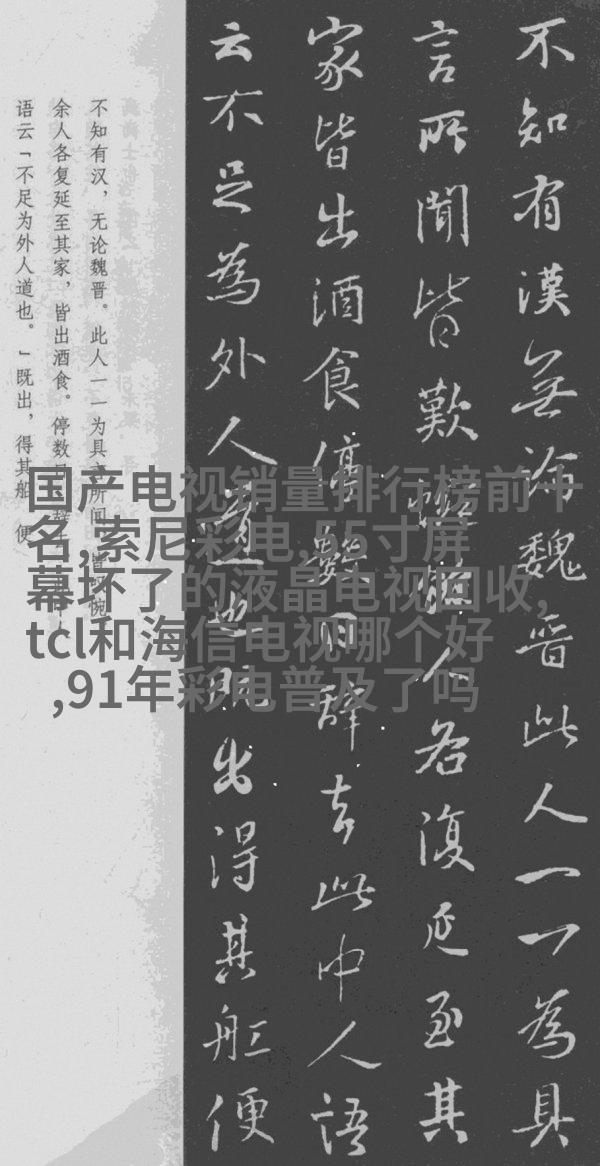 不知有漢無論魏晋此人一一為具
言所聞皆歎惋餘人各復延至其
家皆出酒食停數日辭去此中人語
云不足為外人道也既出得其船便
不知有汉，无论魏晋。此人一一为具言所闻，皆叹惋
余人各复延至其家，皆出酒食。停数日
语云「不足为外人道也。」既出，得其船，便
国产电视销量排行榜前十
名,索尼彩电,55寸屏
幕坏了的液晶电视回收,
tcl和海信电视哪个好
,91年彩电普及了吗